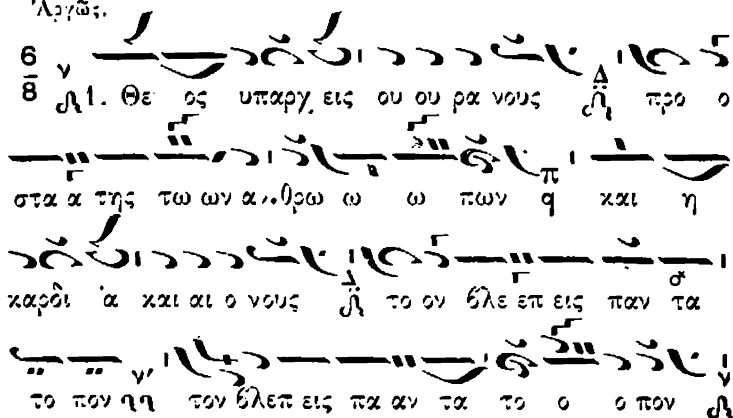 Ἀργῶς.
6
8
1. Θε ος υπαρχ εις ου ου ρα νους Δ προ ο
στα α της τω ων α θρω ω ω πων π q και η
καρδι α και αι ο νους Δ το ον βλε επ εις παν τα
το πον τον βλεπ εις πα αν τα το ο ο πον